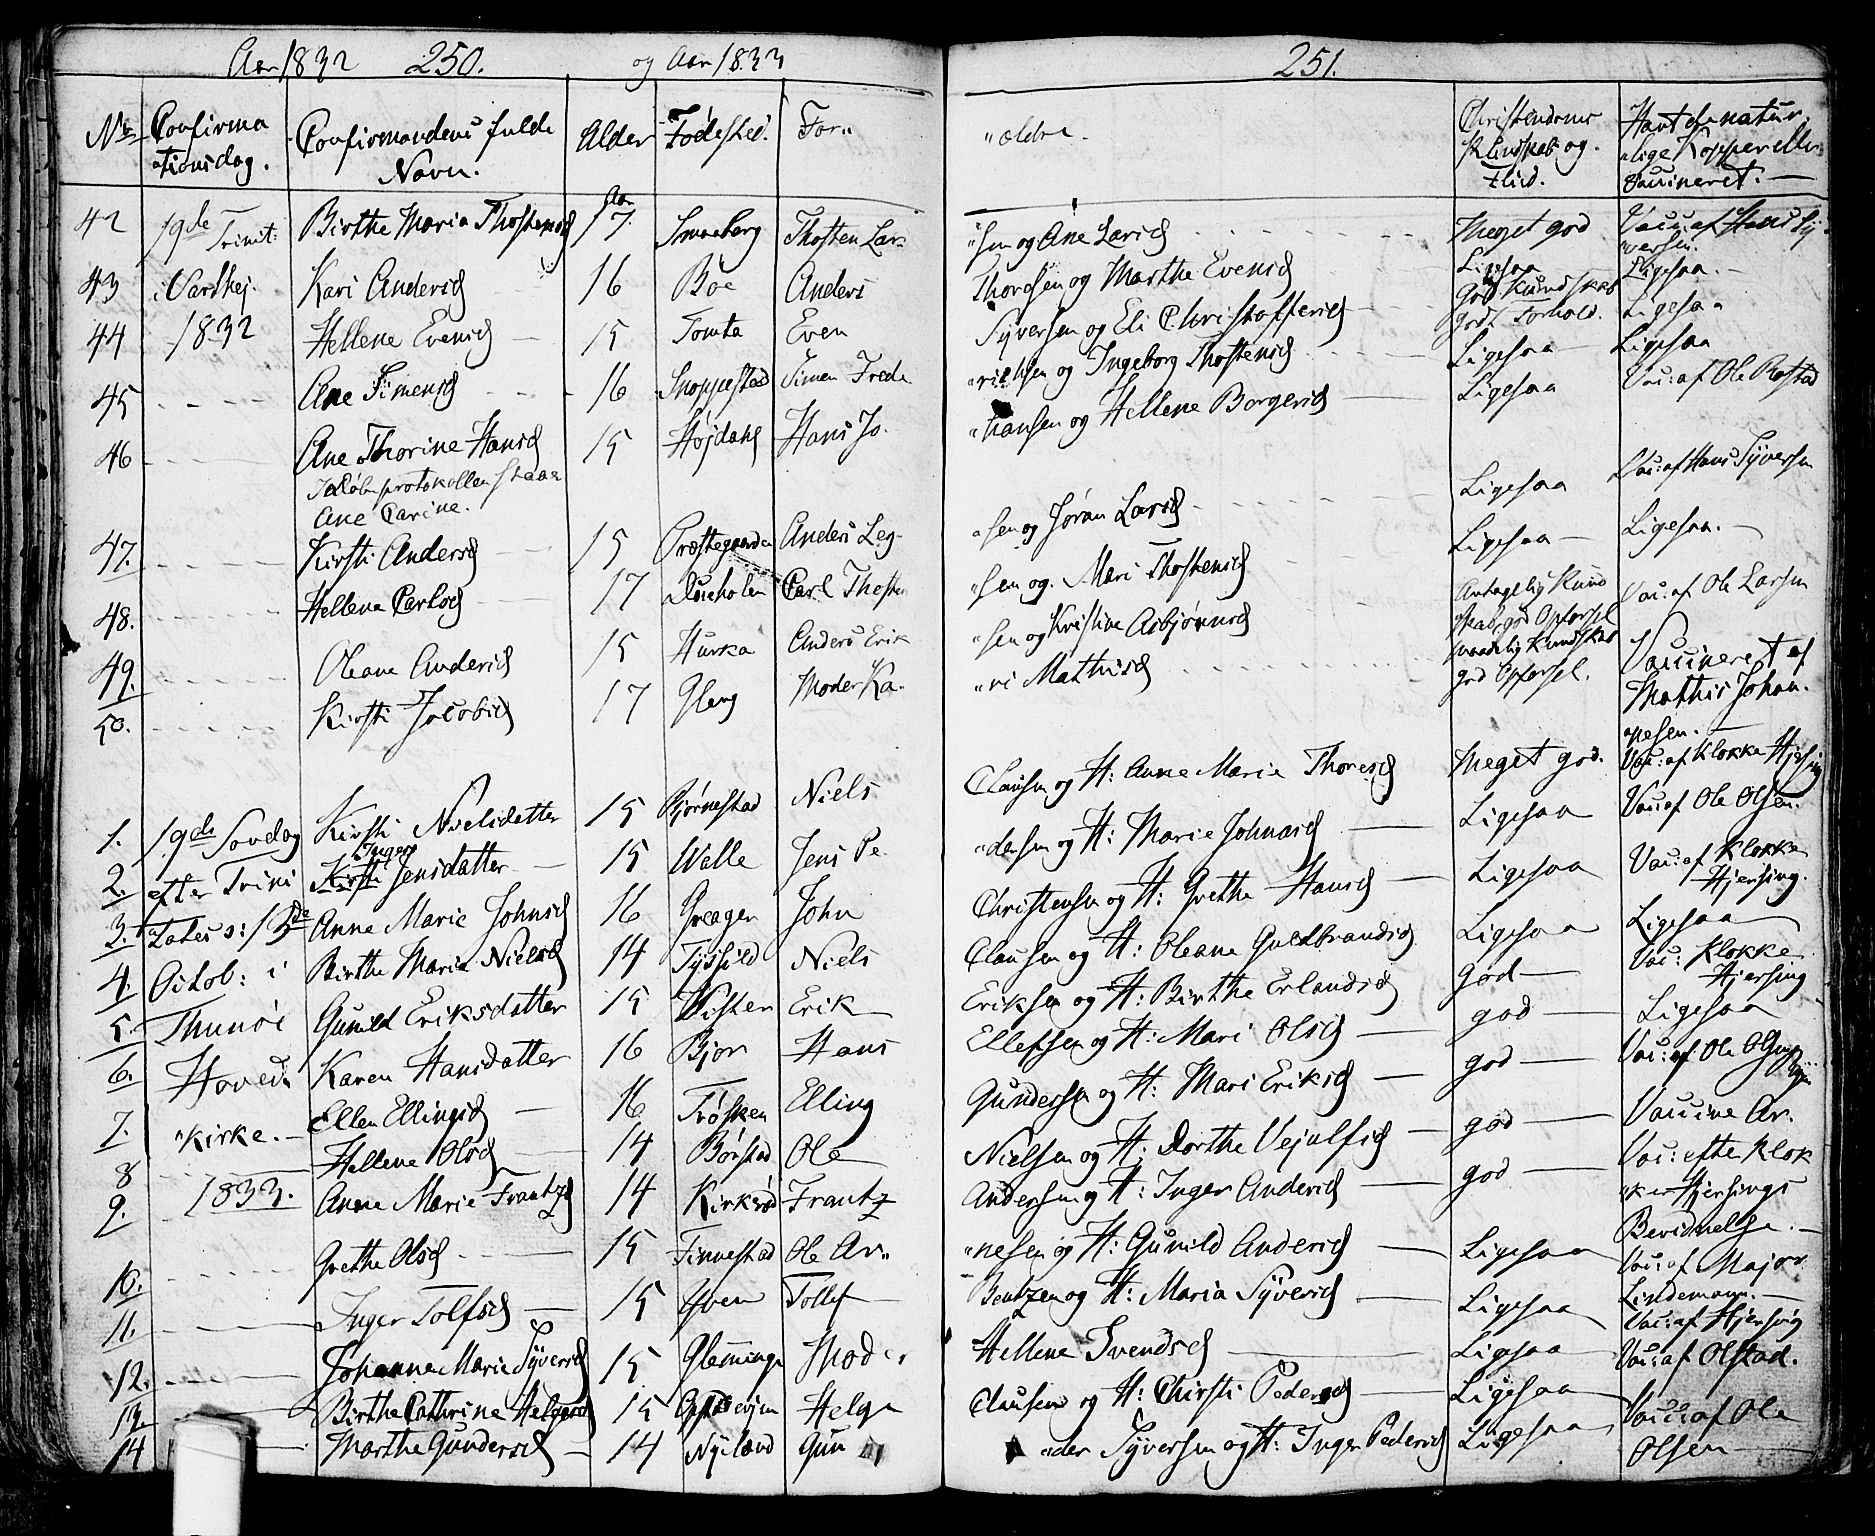 Aar 1832 250. og Aar 1833 251.
No Confirmationsdag. Confirmandens fulde Navn. Alder Fødested. For„ „ældre. Christendoms Kundskab og Flid. Havt de naturlige Kopper eller Vaccineret. —
42 19de Trinit: Birthe Maria Thostensd 17 Aar Smaaberg Thosten Lar- „sen og Ane Larsd Meget god Vacc: af Hans Sÿversen.
43 i Varthej. Kari Andersd 16 Boe Anders Thordsen og Marthe Evensd Ligesaa Ligesaa. —
44 1832 Hellene Evensd 15 Tomta Even Sÿversen og Eli Christoffersd God Kundskab godt Forhold. Ligesaa
45 Ane Simensd 16 Snoppestad Simen Frede „richsen og Ingeborg Thostensd Ligesaa Ligesaa
46 Ane Thorine Hansd 15 Højdahl Hans Jo. „hansen og Hellene Borgersd Ligesaa Vac: af Ole Rostad
I Døbeprotokollen staaer
Ane Carine.
47. Kirsti Andersd 15 Præstegaarden Anders Leg- „sen og Jøran Larsd Ligesaa Vac: af Hans Sÿversen
48. Hellene Carlsd 17 Dueholen Carl Thosten „sen og. Mari Thostensd Ligesaa Ligesaa. —
49. Oleane Andersd 15 Hurka Anders Erik „sen og Kristine Asbjørnsd Antagelig Kundskab, god Opførsel Vac: af Ole Larsen
50. Kirsti Jacobsd 17 Gleng Moder Ka- „ri Mathisd maadelig Kundskab god Opførsel. Vaccineret af Mathis Johan„nesen. —
1. 19de Søndag Kirsti Nielsdatter 15 Bjørnestad Niels Clausen og H: Anne Marie Thoresd Meget god. Vac: af Klokker Hjersing
2. efter Trini Kirsti Inger Jensdatter 15 Walle Jens Pe „dersen og H: Marie Johnasd Ligesaa Vac: af Ole Olsen.
3. „tatis s: 13de Anne Marie Johnsd 16 Greager John Christensen og H: Grethe Hansd Ligesaa Vac: af Klokker Hjersing.
4. Octob: i Birthe Maria Nielsd 14 Tÿsfild Niels Clausen og H: Oleane Guldbrandsd Ligesaa Ligesaa
5. Thunøe Gunild Eriksdatter 15 Wister Erik Eriksen og H: Birthe Erlandsd God Vac: Klokker Hjersing
6. Hoved„ Karen Hansdatter 16 Bjør Hans Ellefsen og H: Mari Olsd god Ligesaa
7. „kirke. Ellen Ellingsd 16 Trøsken Elling Gundersen og H: Mari Eriksd god Vac: af Ole Olsen
8 Hellene Olsd 14 Børstad Ole Nielsen og H: Dorthe Vejulfsd god Vaccine Ar.
9. 1833. Anne Marie Frantzd 14 Kirkrød Frantz Andersen og H: Inger Andersd god Vac: efter Klok„ker Hjersings Bevidnelse. —
10. Grethe Olsd 15 Finnestad Ole Ar„ „nesen og H: Gunild Andersd Ligesaa Vac: af Major Lindemann. —
11. Inger Tolfsd 15 Yven Tollef Bentzen og H: Maria Sÿversd Ligesaa Vac: af Hjersing
12. Johanne Marie Sÿversd 15 Gleminge Moder Hellene Svendsd Ligesaa Vac: af Olstad.
13. Birthe Cathrine Helgesd 15 Helge Clausen og H: Chirsti Pedersd Ligesaa Vacc: af Ole
14 Marthe Gundersd 14 Nÿeland Gun „der Sÿversen og H: Inger Pedersd Ligesaa Olsen